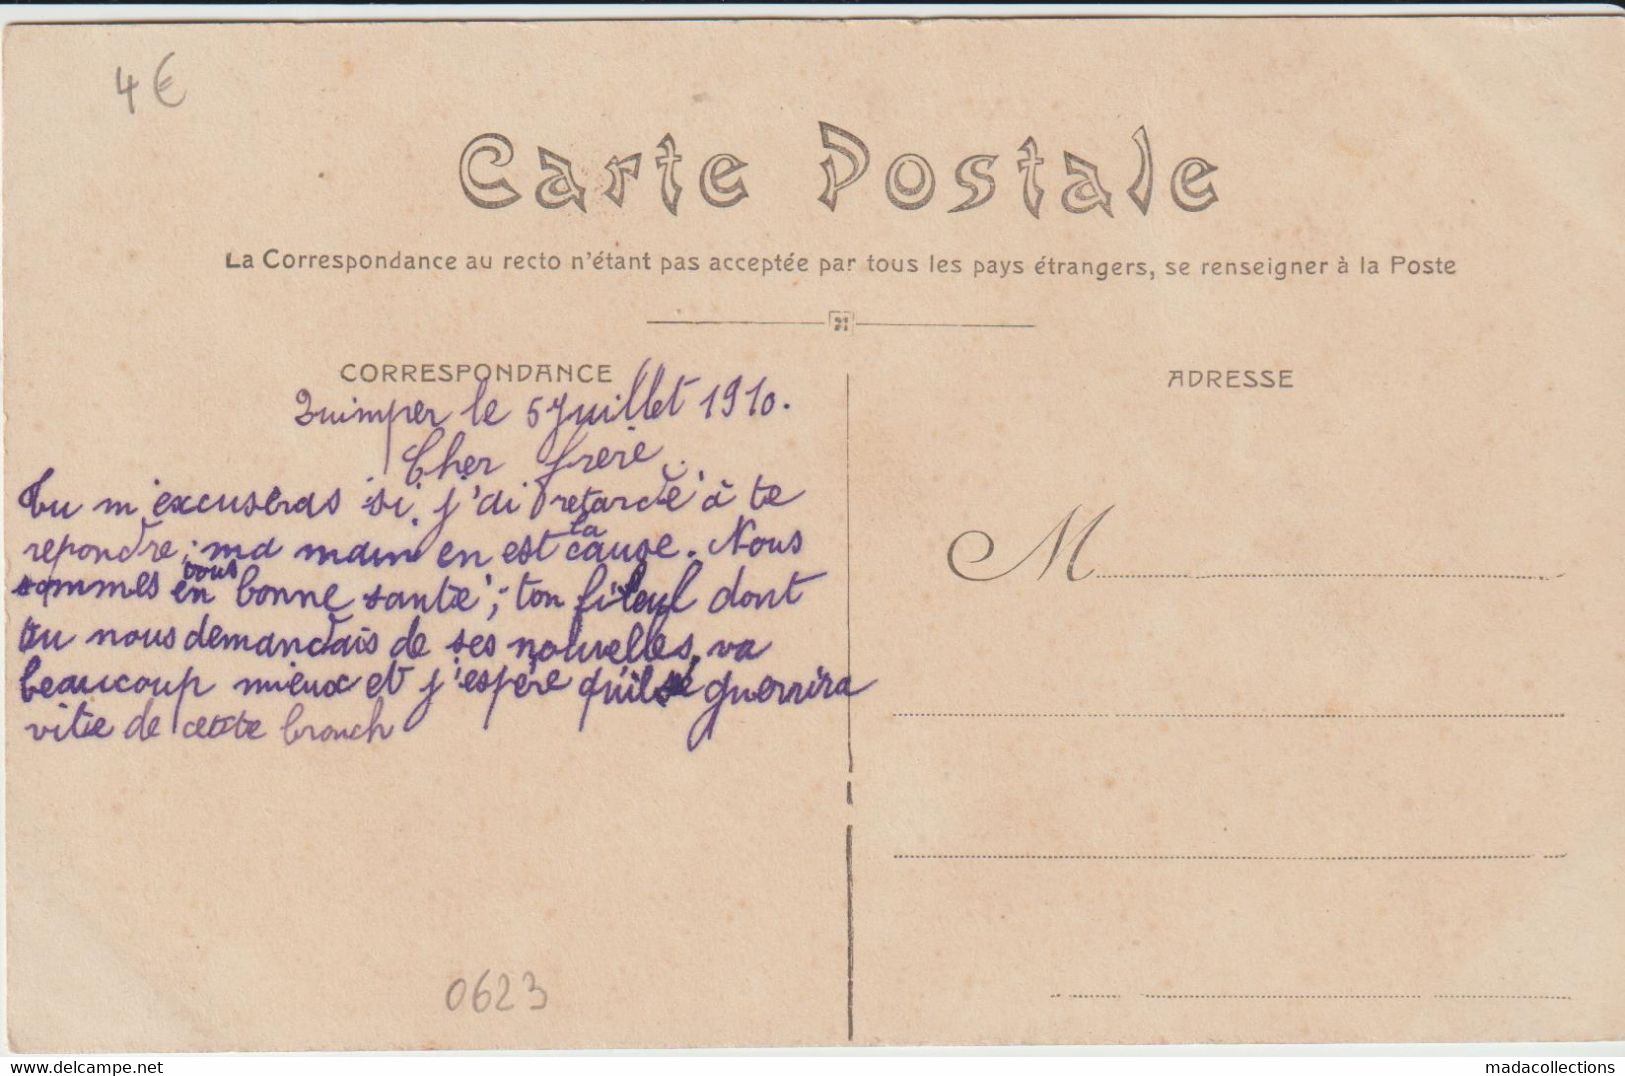 4€
Carte Postale
La Correspondance au recto n'étant pas acceptée par tous les pays étrangers, se renseigner à la Poste
CORRESPONDANCE
ADRESSE
Quimper le 5 Juillet 1910.
Cher frère
Tu m'excuseras si j'ai retardé à te
repondre; ma main en est la cause. Nous
sommes tous en bonne santé; ton filleul dont
tu nous demandais de ses nouvelles, va
beaucoup mieux et j'espère qu'il se guerrira
vite de cette bronch
M
0623
www.delcampe.net
madacollections